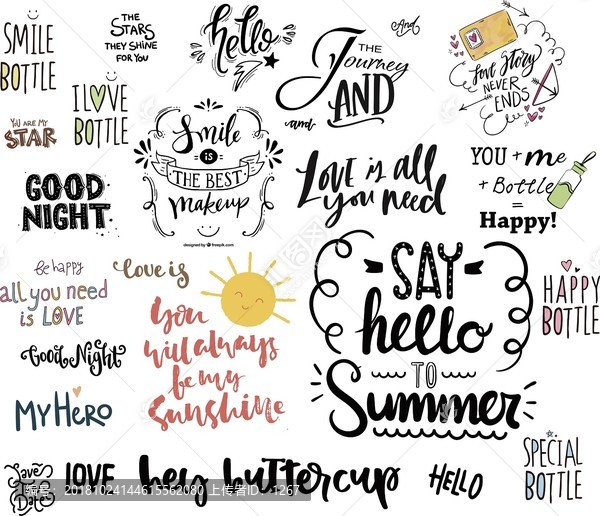 SMILE
BOTTLE
THE
STARS
THEY SHINE
FOR YOU
hello
THE
Journey
AND
And
and
Love Story
NEVER
ENDS
I LOVE
BOTTLE
YOU ARE MY
STAR
Smile
IS
THE BEST
makeup
designed by freepik.com
GOOD
NIGHT
Love is all
you need
YOU + me
+ Bottle
=
Happy!
be happy
Love is
all you need
is LOVE
You
will always
be my
sunshine
SAY
hello
TO
Summer
HAPPY
BOTTLE
Good Night
MY HERO
SPECIAL
BOTTLE
Save
the
Dates
LOVE
hey buttercup
HELLO
编号：20181024144615562080 上传者ID：1267